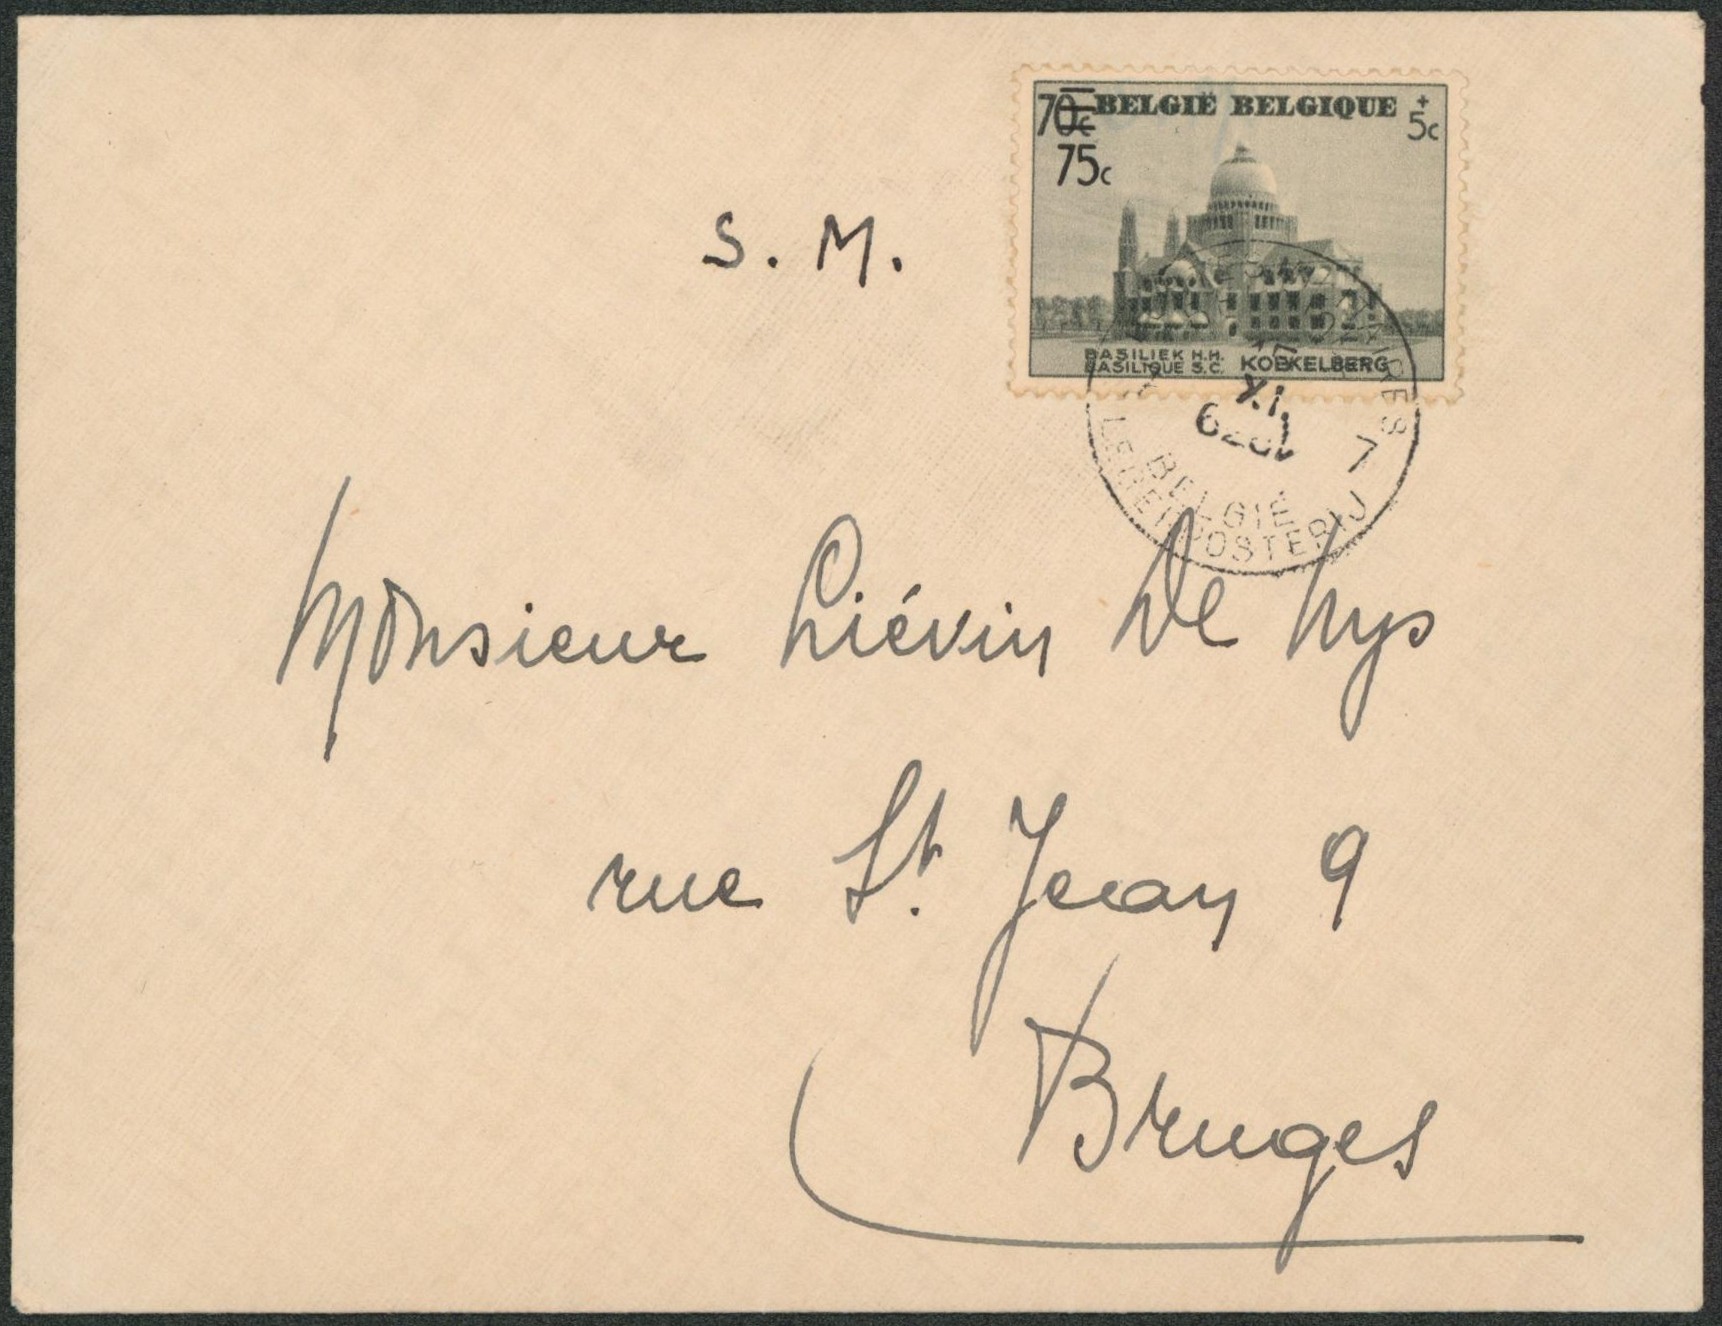 70c BELGIË BELGIQUE + 5c
75c
S. M.
BASILIEK H.H.
BASILIQUE S.C. KOEKELBERG
XI
7
BELGIË
LEGERPOSTERIJ
Monsieur Liévin De Nys
rue St. Jean 9
Bruges